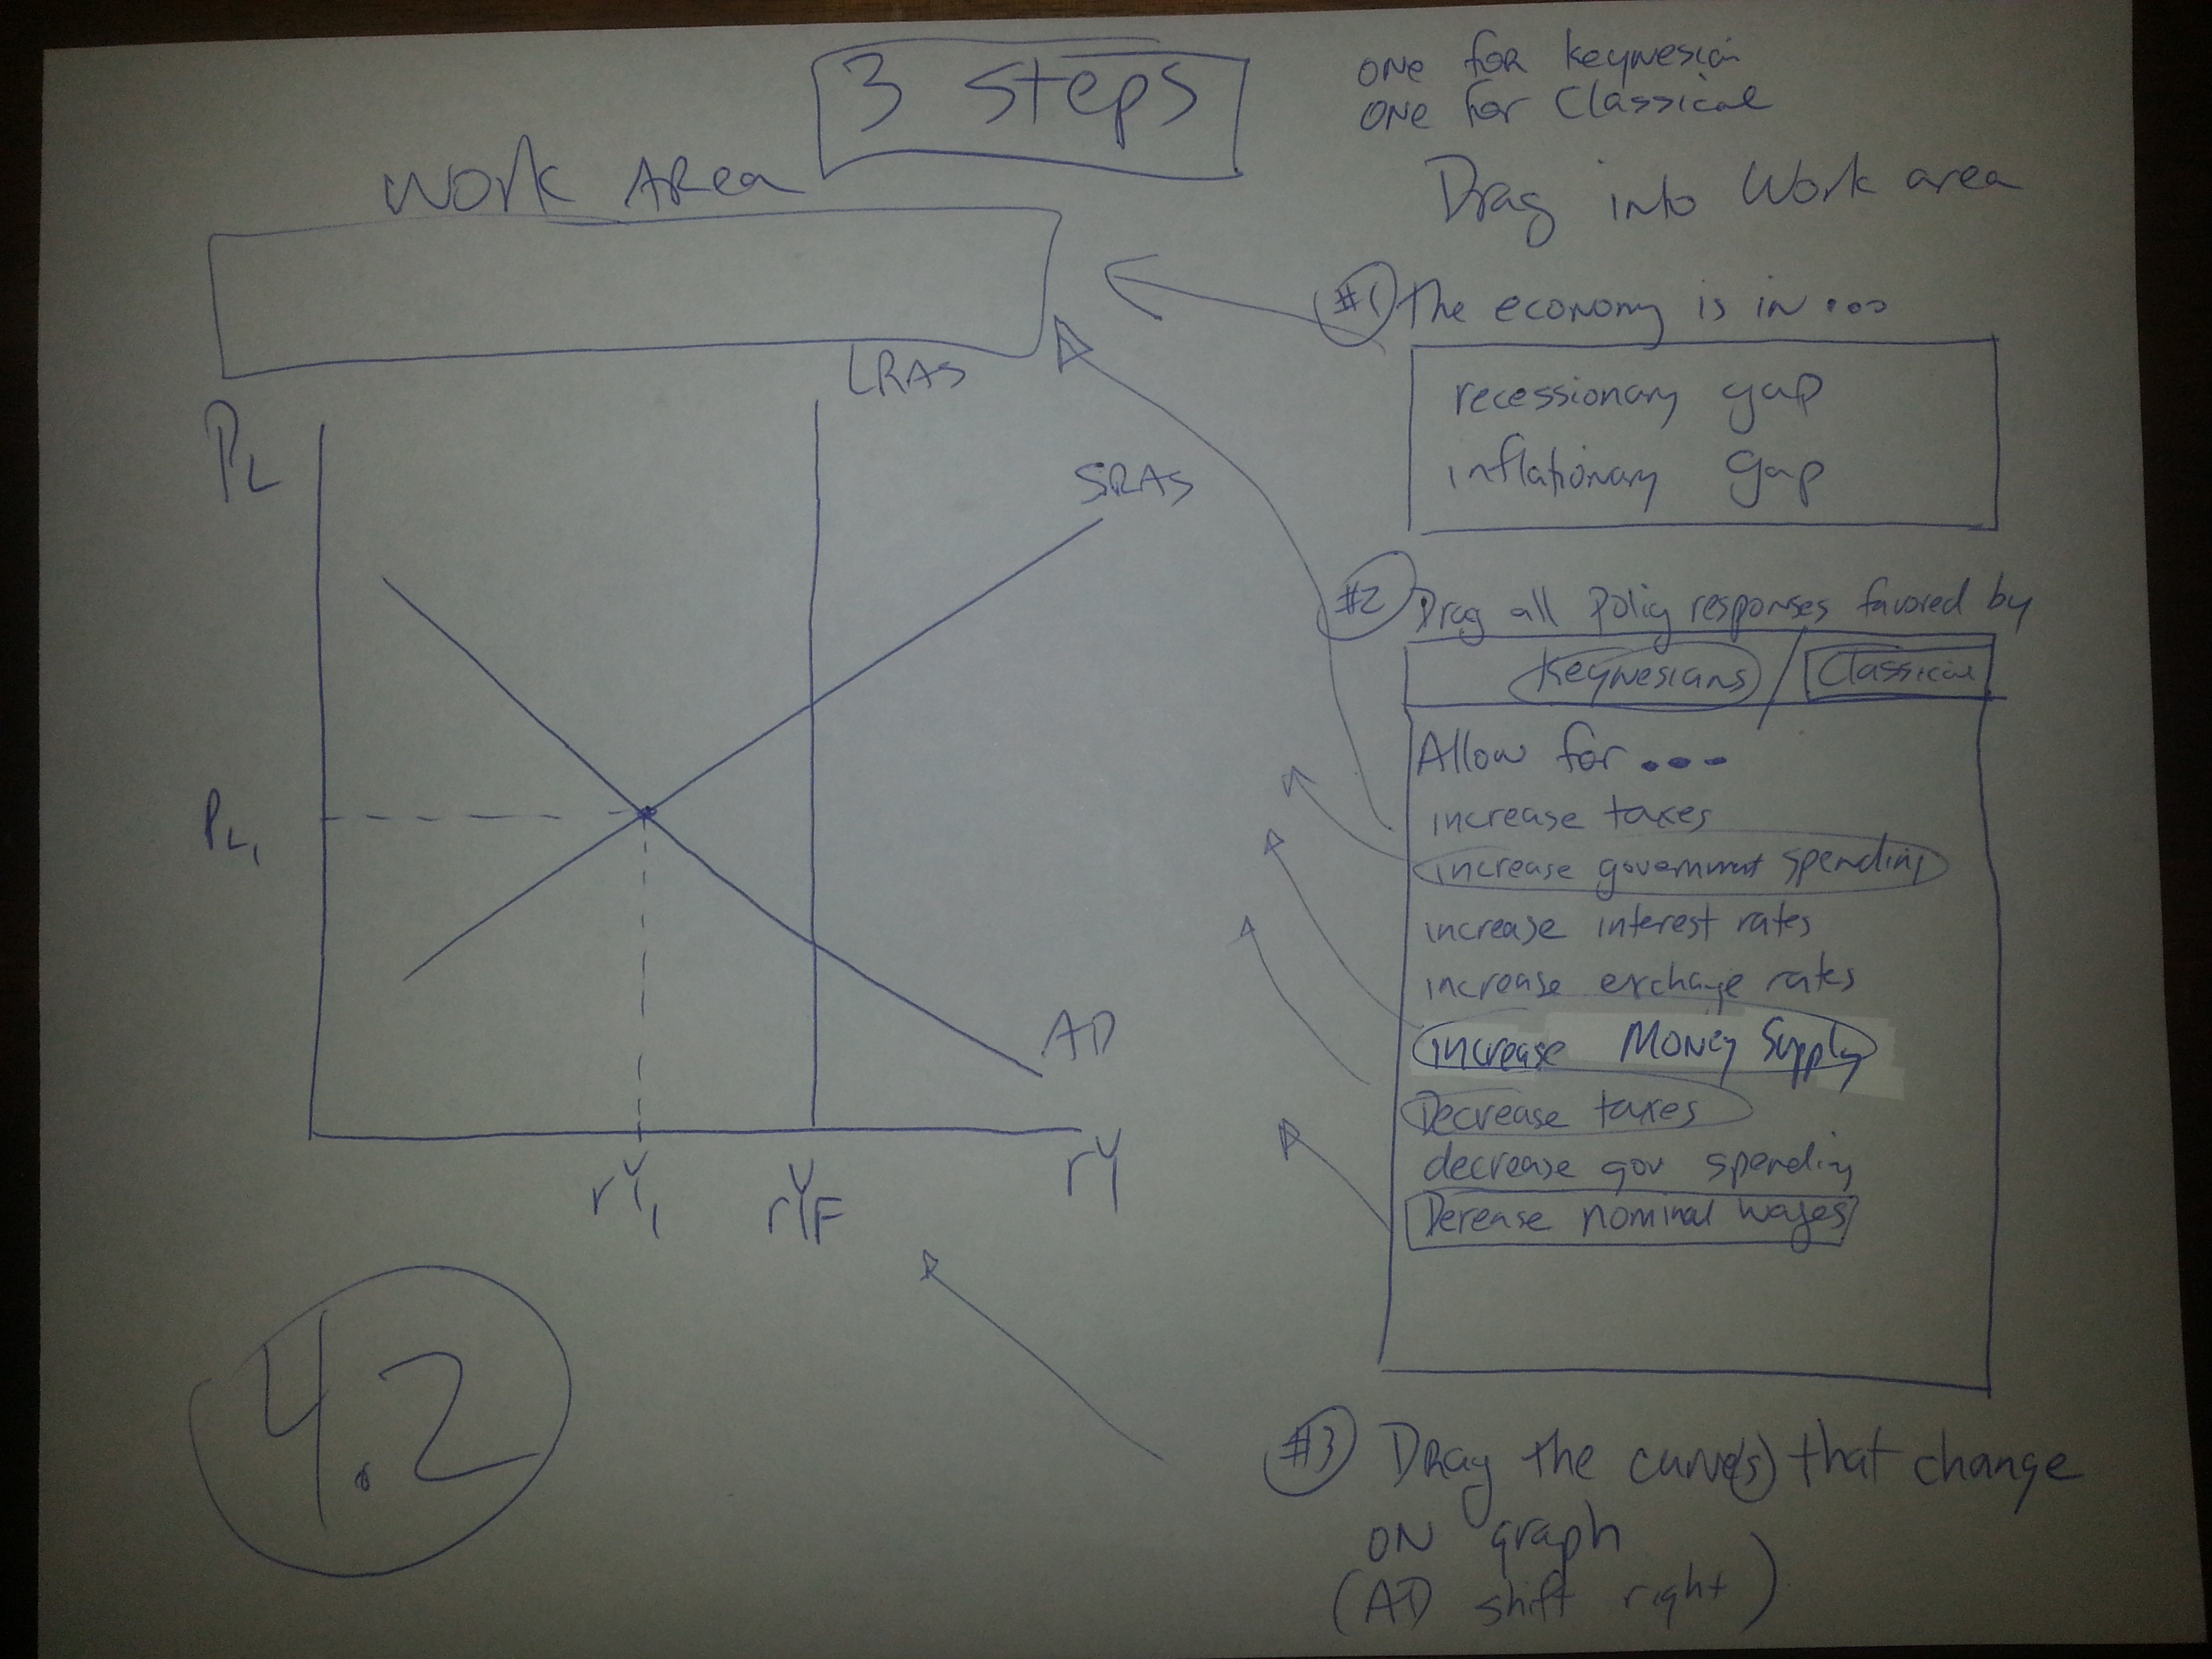 3 steps
one for keynesian
one for Classical
Work Area
Drag into Work area
#1 The economy is in...
recessionary gap
inflationary gap
LRAS
PL
SRAS
PL1
AD
rY1
rYF
rY
#2 Drag all Policy responses favored by
Keynesians / Classical
Allow for...
increase taxes
increase government spending
increase interest rates
increase exchange rates
increase Money Supply
Decrease taxes
decrease gov spending
Derease nominal wages
4.2
#3 Drag the curve(s) that change
on graph
(AD shift right)